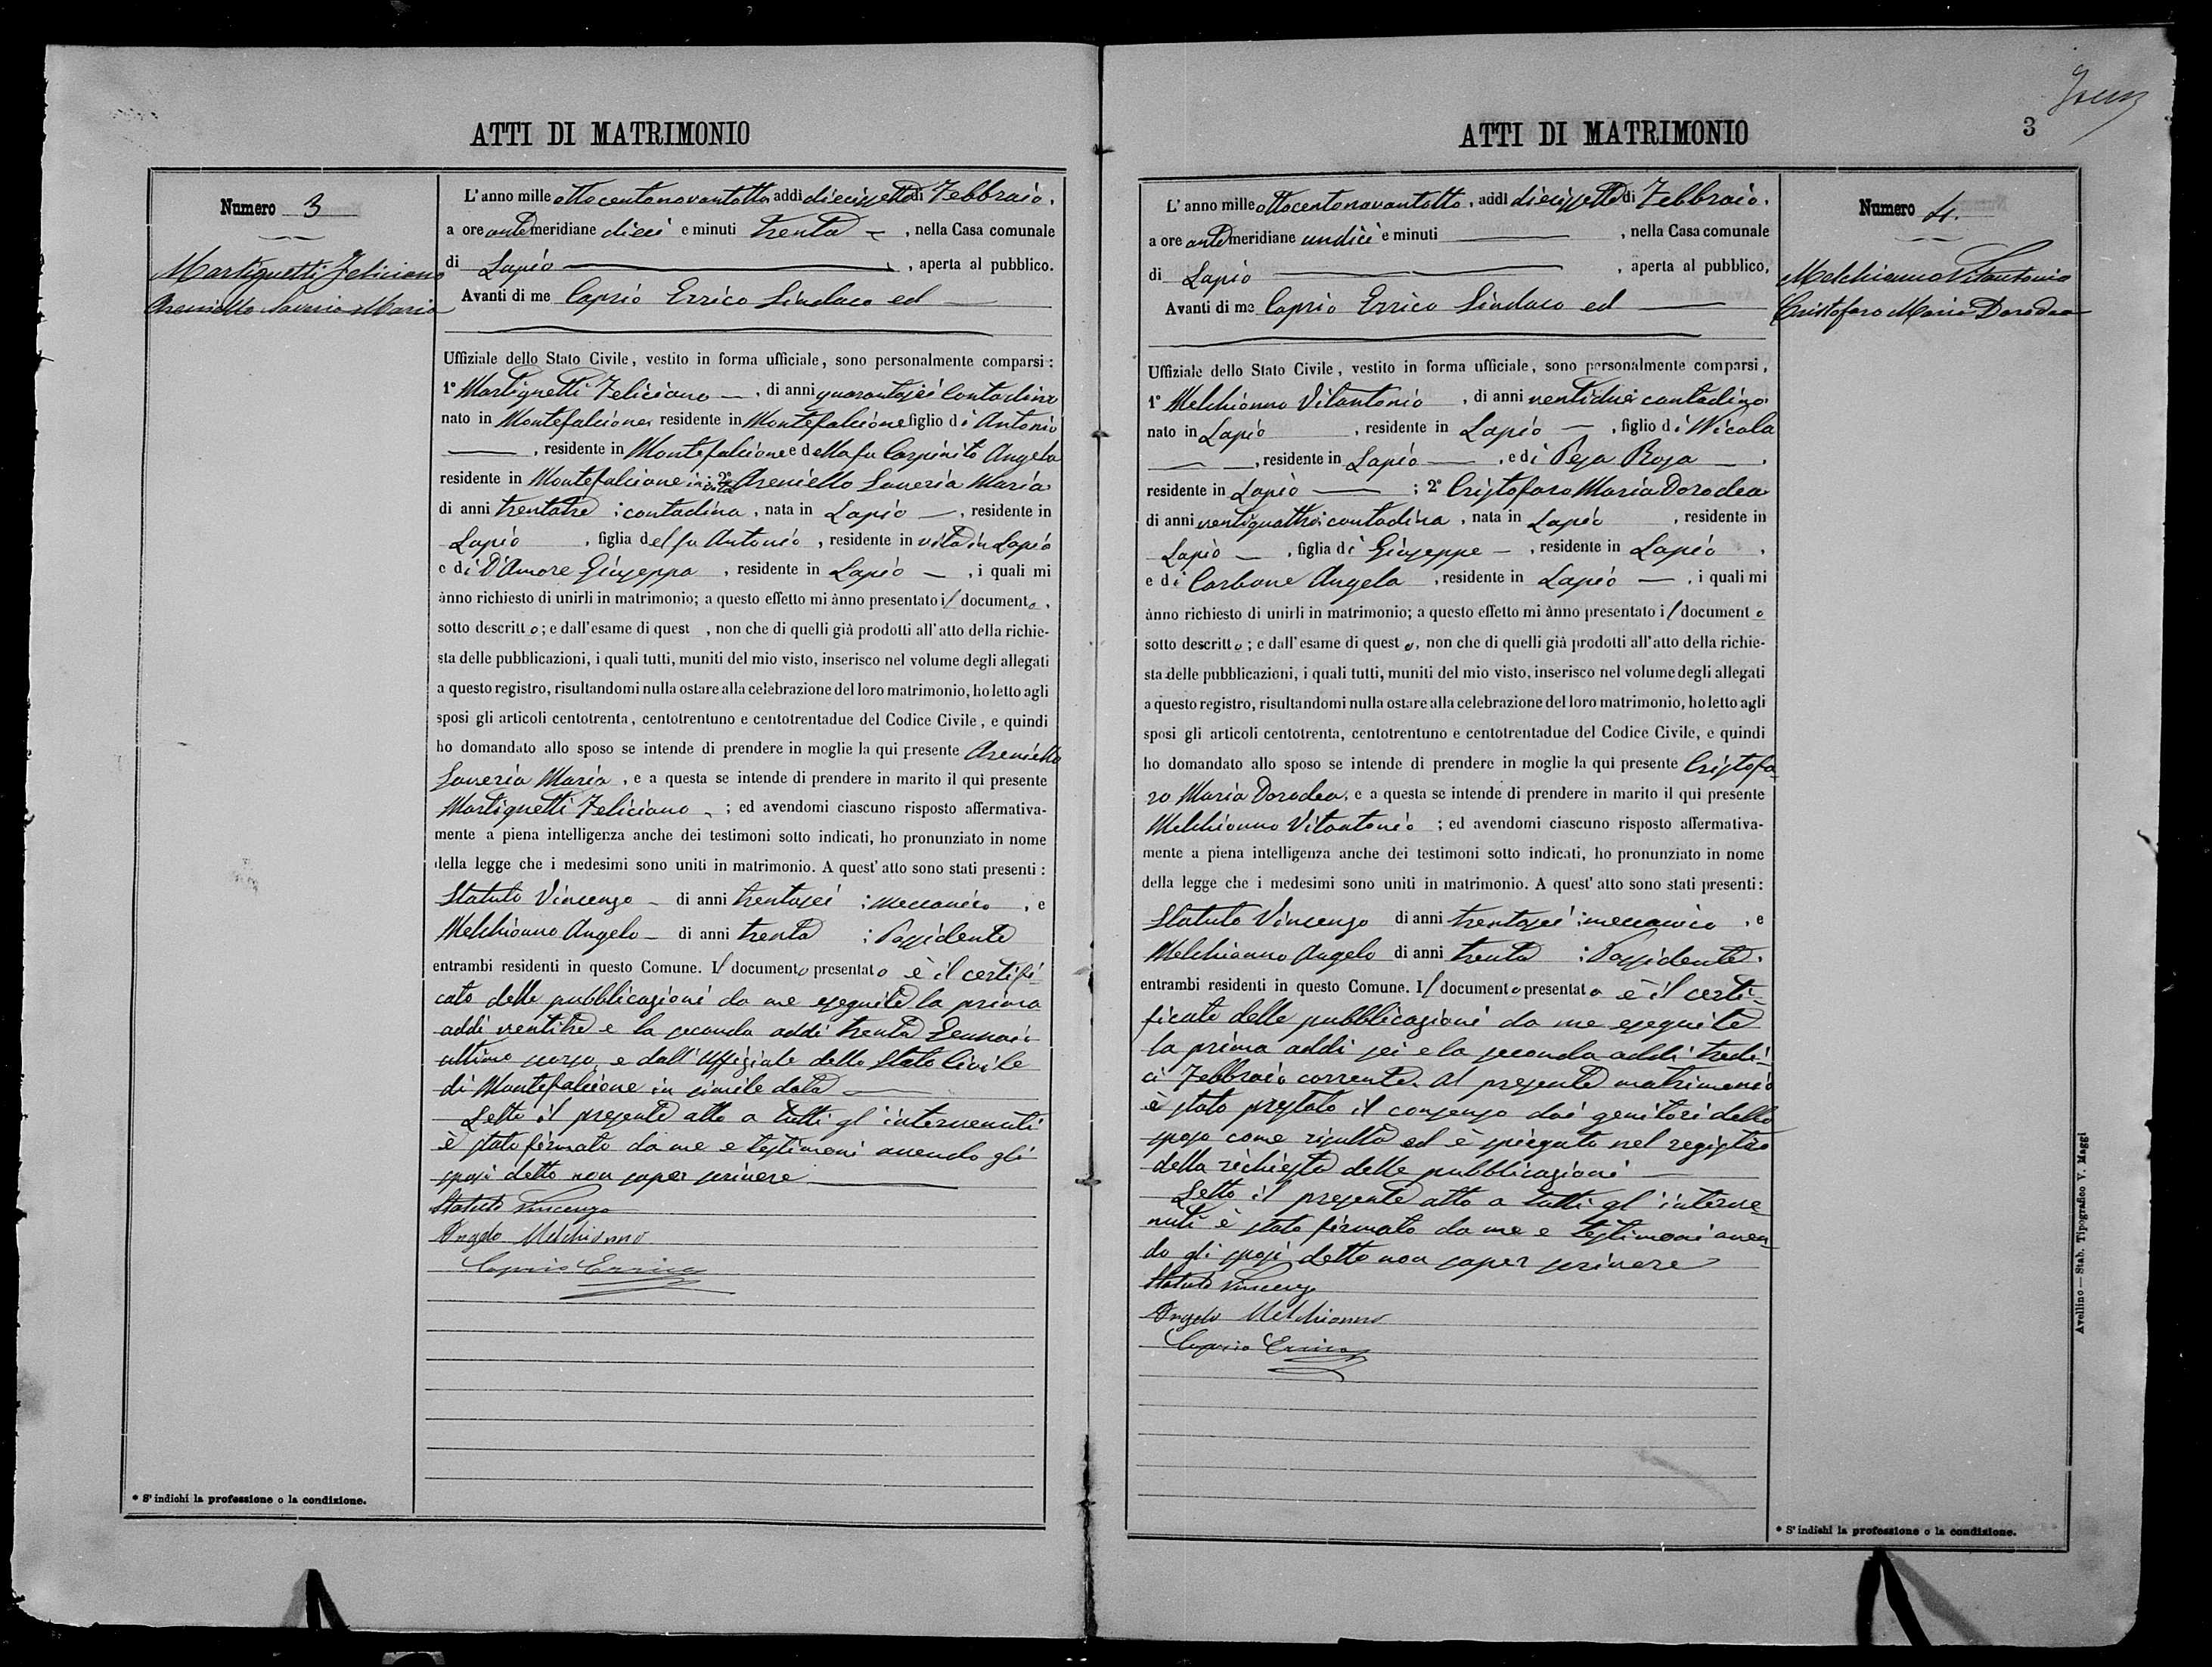 ATTI DI MATRIMONIO
Numero 3
Martignetti Feliciano
Areniello Saveria Maria
L'anno mille ottocentonovantotto, addi diecissette di Febbraio,
a ore antemeridiane dieci e minuti trenta —, nella Casa comunale
di Lapio — , aperta al pubblico.
Avanti di me Caprio Errico Sindaco ed —
Uffiziale dello Stato Civile, vestito in forma ufficiale, sono personalmente comparsi:
1° Martignetti Feliciano —, di anni quarantasei contadino
nato in Montefalcione, residente in Montefalcione figlio di Antonio
— , residente in Montefalcione e della fu Carpinito Angela
residente in Montefalcione in vita; 2° Areniello Saveria Maria
di anni trentatre ; contadina, nata in Lapio —, residente in
Lapio , figlia del fu Antonio , residente in vita in Lapio
e di D'Amore Giuseppa , residente in Lapio — , i quali mi
ànno richiesto di unirli in matrimonio; a questo effetto mi ànno presentato il documento,
sotto descritto; e dall'esame di quest , non che di quelli già prodotti all'atto della richie-
sta delle pubblicazioni, i quali tutti, muniti del mio visto, inserisco nel volume degli allegati
a questo registro, risultandomi nulla ostare alla celebrazione del loro matrimonio, ho letto agli
sposi gli articoli centotrenta, centotrentuno e centotrentadue del Codice Civile, e quindi
ho domandato allo sposo se intende di prendere in moglie la qui presente Areniello
Saveria Maria, e a questa se intende di prendere in marito il qui presente
Martignetti Feliciano ; ed avendomi ciascuno risposto affermativa-
mente a piena intelligenza anche dei testimoni sotto indicati, ho pronunziato in nome
della legge che i medesimi sono uniti in matrimonio. A quest' atto sono stati presenti:
Statuto Vincenzo — di anni trentasei ; meccanico , e
Melchionno Angelo — di anni trenta ; Possidente
entrambi residenti in questo Comune. Il documento presentato è il certifi-
cato delle pubblicazioni da me eseguite la prima
addì ventitre e la seconda addì trenta Gennaio
ultimo scorso, e dall'Uffiziale dello Stato Civile
di Montefalcione in simile data —
Letto il presente atto a tutti gl'intervenuti
è stato firmato da me e testimoni avendo gli
sposi detto non saper scrivere —
Statuto Vincenzo
Angelo Melchionno
Caprio Errico
* S'indichi la professione o la condizione.
ATTI DI MATRIMONIO
3
Numero 4.
Melchionno Vitantonio
Cristofaro Maria Dorodea
L'anno mille ottocentonovantotto, addi diecissette di Febbraio,
a ore antemeridiane undici e minuti — , nella Casa comunale
di Lapio — , aperta al pubblico,
Avanti di me Caprio Errico Sindaco ed —
Uffiziale dello Stato Civile, vestito in forma ufficiale, sono personalmente comparsi,
1° Melchionno Vitantonio , di anni ventidue; contadino
nato in Lapio , residente in Lapio — , figlio di Nicola
— , residente in Lapio — , e di Pesa Rosa — ,
residente in Lapio — ; 2° Cristofaro Maria Dorodea
di anni ventiquattro; contadina , nata in Lapio , residente in
Lapio — , figlia di Giuseppe — , residente in Lapio ,
e di Carbone Angela , residente in Lapio — , i quali mi
ànno richiesto di unirli in matrimonio; a questo effetto mi ànno presentato il documento
sotto descritto; e dall'esame di questo, non che di quelli già prodotti all'atto della richie-
sta delle pubblicazioni, i quali tutti, muniti del mio visto, inserisco nel volume degli allegati
a questo registro, risultandomi nulla ostare alla celebrazione del loro matrimonio, ho letto agli
sposi gli articoli centotrenta, centotrentuno e centotrentadue del Codice Civile, e quindi
ho domandato allo sposo se intende di prendere in moglie la qui presente Cristofa-
ro Maria Dorodea, e a questa se intende di prendere in marito il qui presente
Melchionno Vitantonio ; ed avendomi ciascuno risposto affermativa-
mente a piena intelligenza anche dei testimoni sotto indicati, ho pronunziato in nome
della legge che i medesimi sono uniti in matrimonio. A quest' atto sono stati presenti:
Statuto Vincenzo di anni trentasei ; meccanico , e
Melchionno Angelo di anni trenta ; Possidente,
entrambi residenti in questo Comune. Il documento presentato è il certi-
ficato delle pubblicazioni da me eseguite
la prima addì sei e la seconda addì tredi-
ci Febbraio corrente. Al presente matrimonio
è stato prestato il consenso dai genitori dello
sposo come risulta ed è spiegato nel registro
della richiesta delle pubblicazioni —
Letto il presente atto a tutti gl'interve-
nuti è stato firmato da me e testimoni aven-
do gli sposi detto non saper scrivere
Statuto Vincenzo
Angelo Melchionno
Caprio Errico
* S'indichi la professione o la condizione.
Avellino — Stab. Tipografico V. Maggi